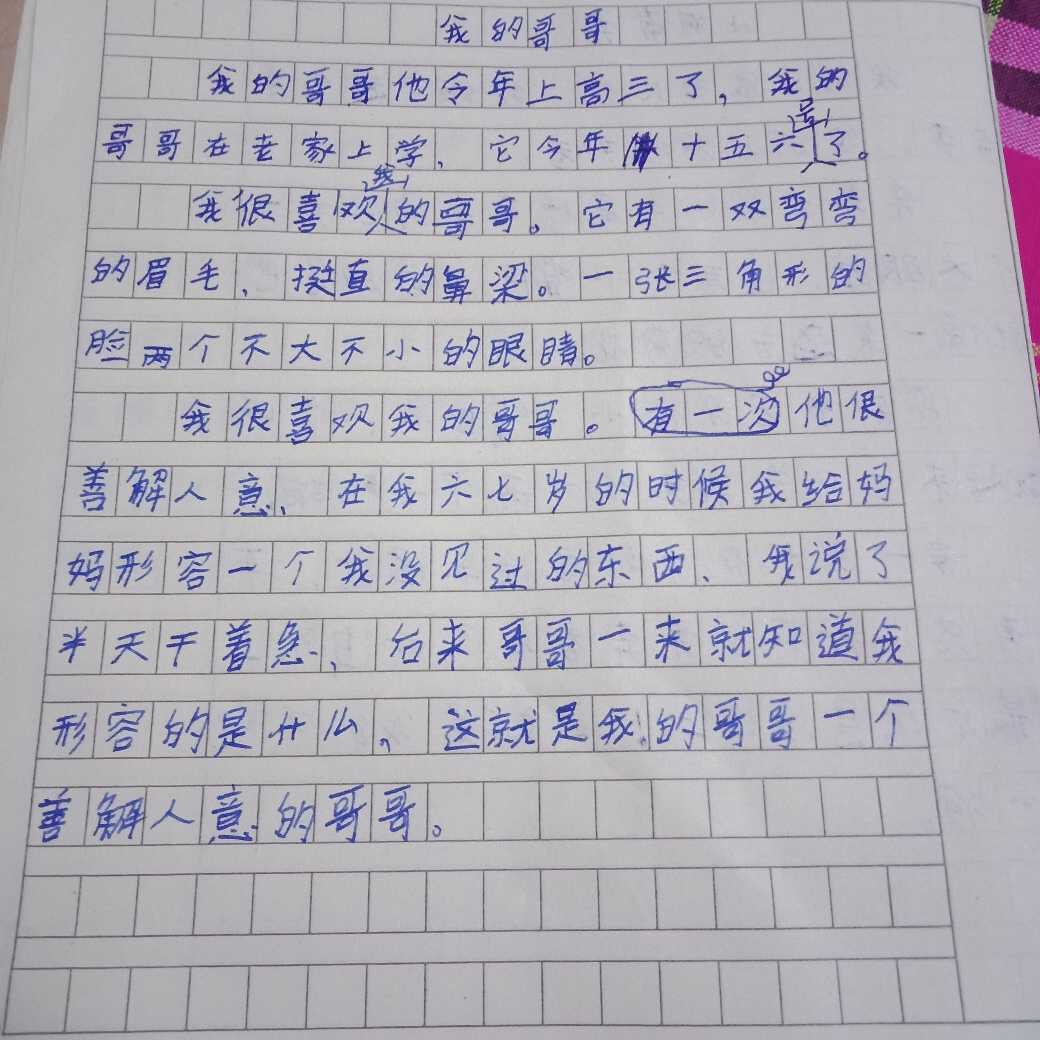 我的哥哥
我的哥哥他今年上高三了,我的
哥哥在老家上学、它今年十五六岁了。
我很喜欢我的哥哥。它有一双弯弯
的眉毛、挺直的鼻梁。一张三角形的
脸两个不大不小的眼睛。
我很喜欢我的哥哥。有一次他很
善解人意、在我六七岁的时候我给妈
妈形容一个我没见过的东西、我说了
半天干着急、后来哥哥一来就知道我
形容的是什么,这就是我的哥哥一个
善解人意的哥哥。